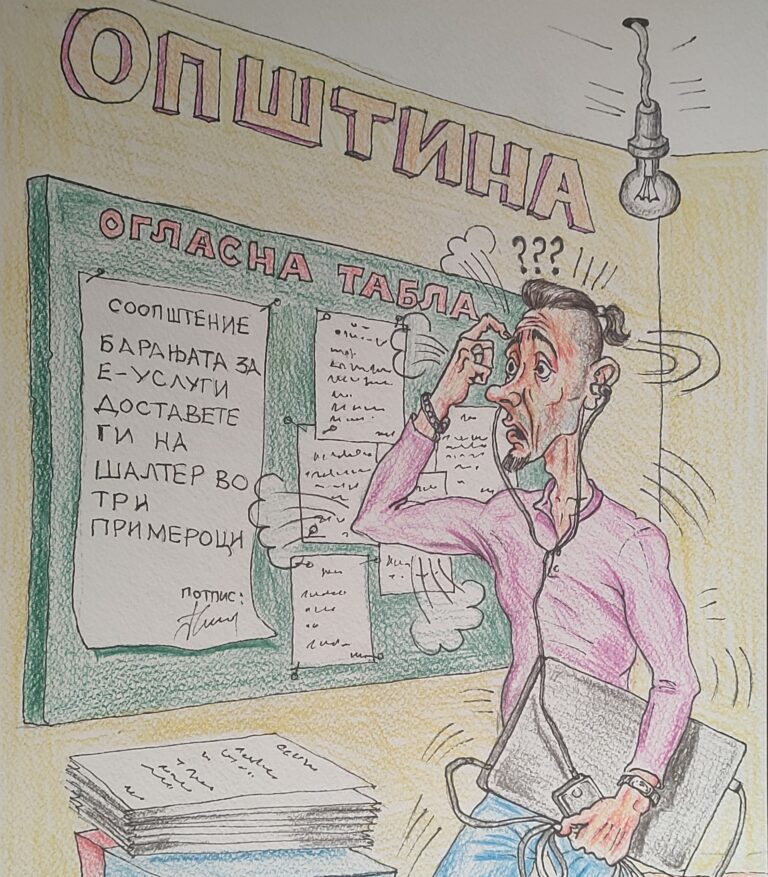 ОПШТИНА
ОГЛАСНА ТАБЛА
СООПШТЕНИЕ
БАРАЊАТА ЗА
Е-УСЛУГИ
ДОСТАВЕТЕ
ГИ НА
ШАЛТЕР ВО
ТРИ
ПРИМЕРОЦИ
ПОТПИС:
???